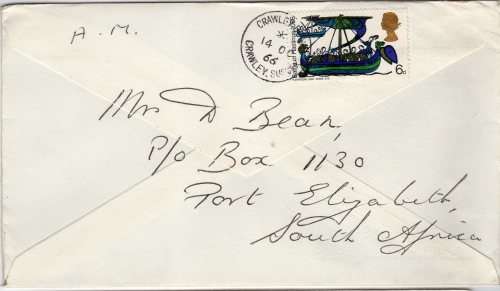 A.M.
CRAWLEY
14 O
66
CRAWLEY, SUSSEX
6D
Mrs D Bean,
P/o Box 1130
Port Elizabeth,
South Africa